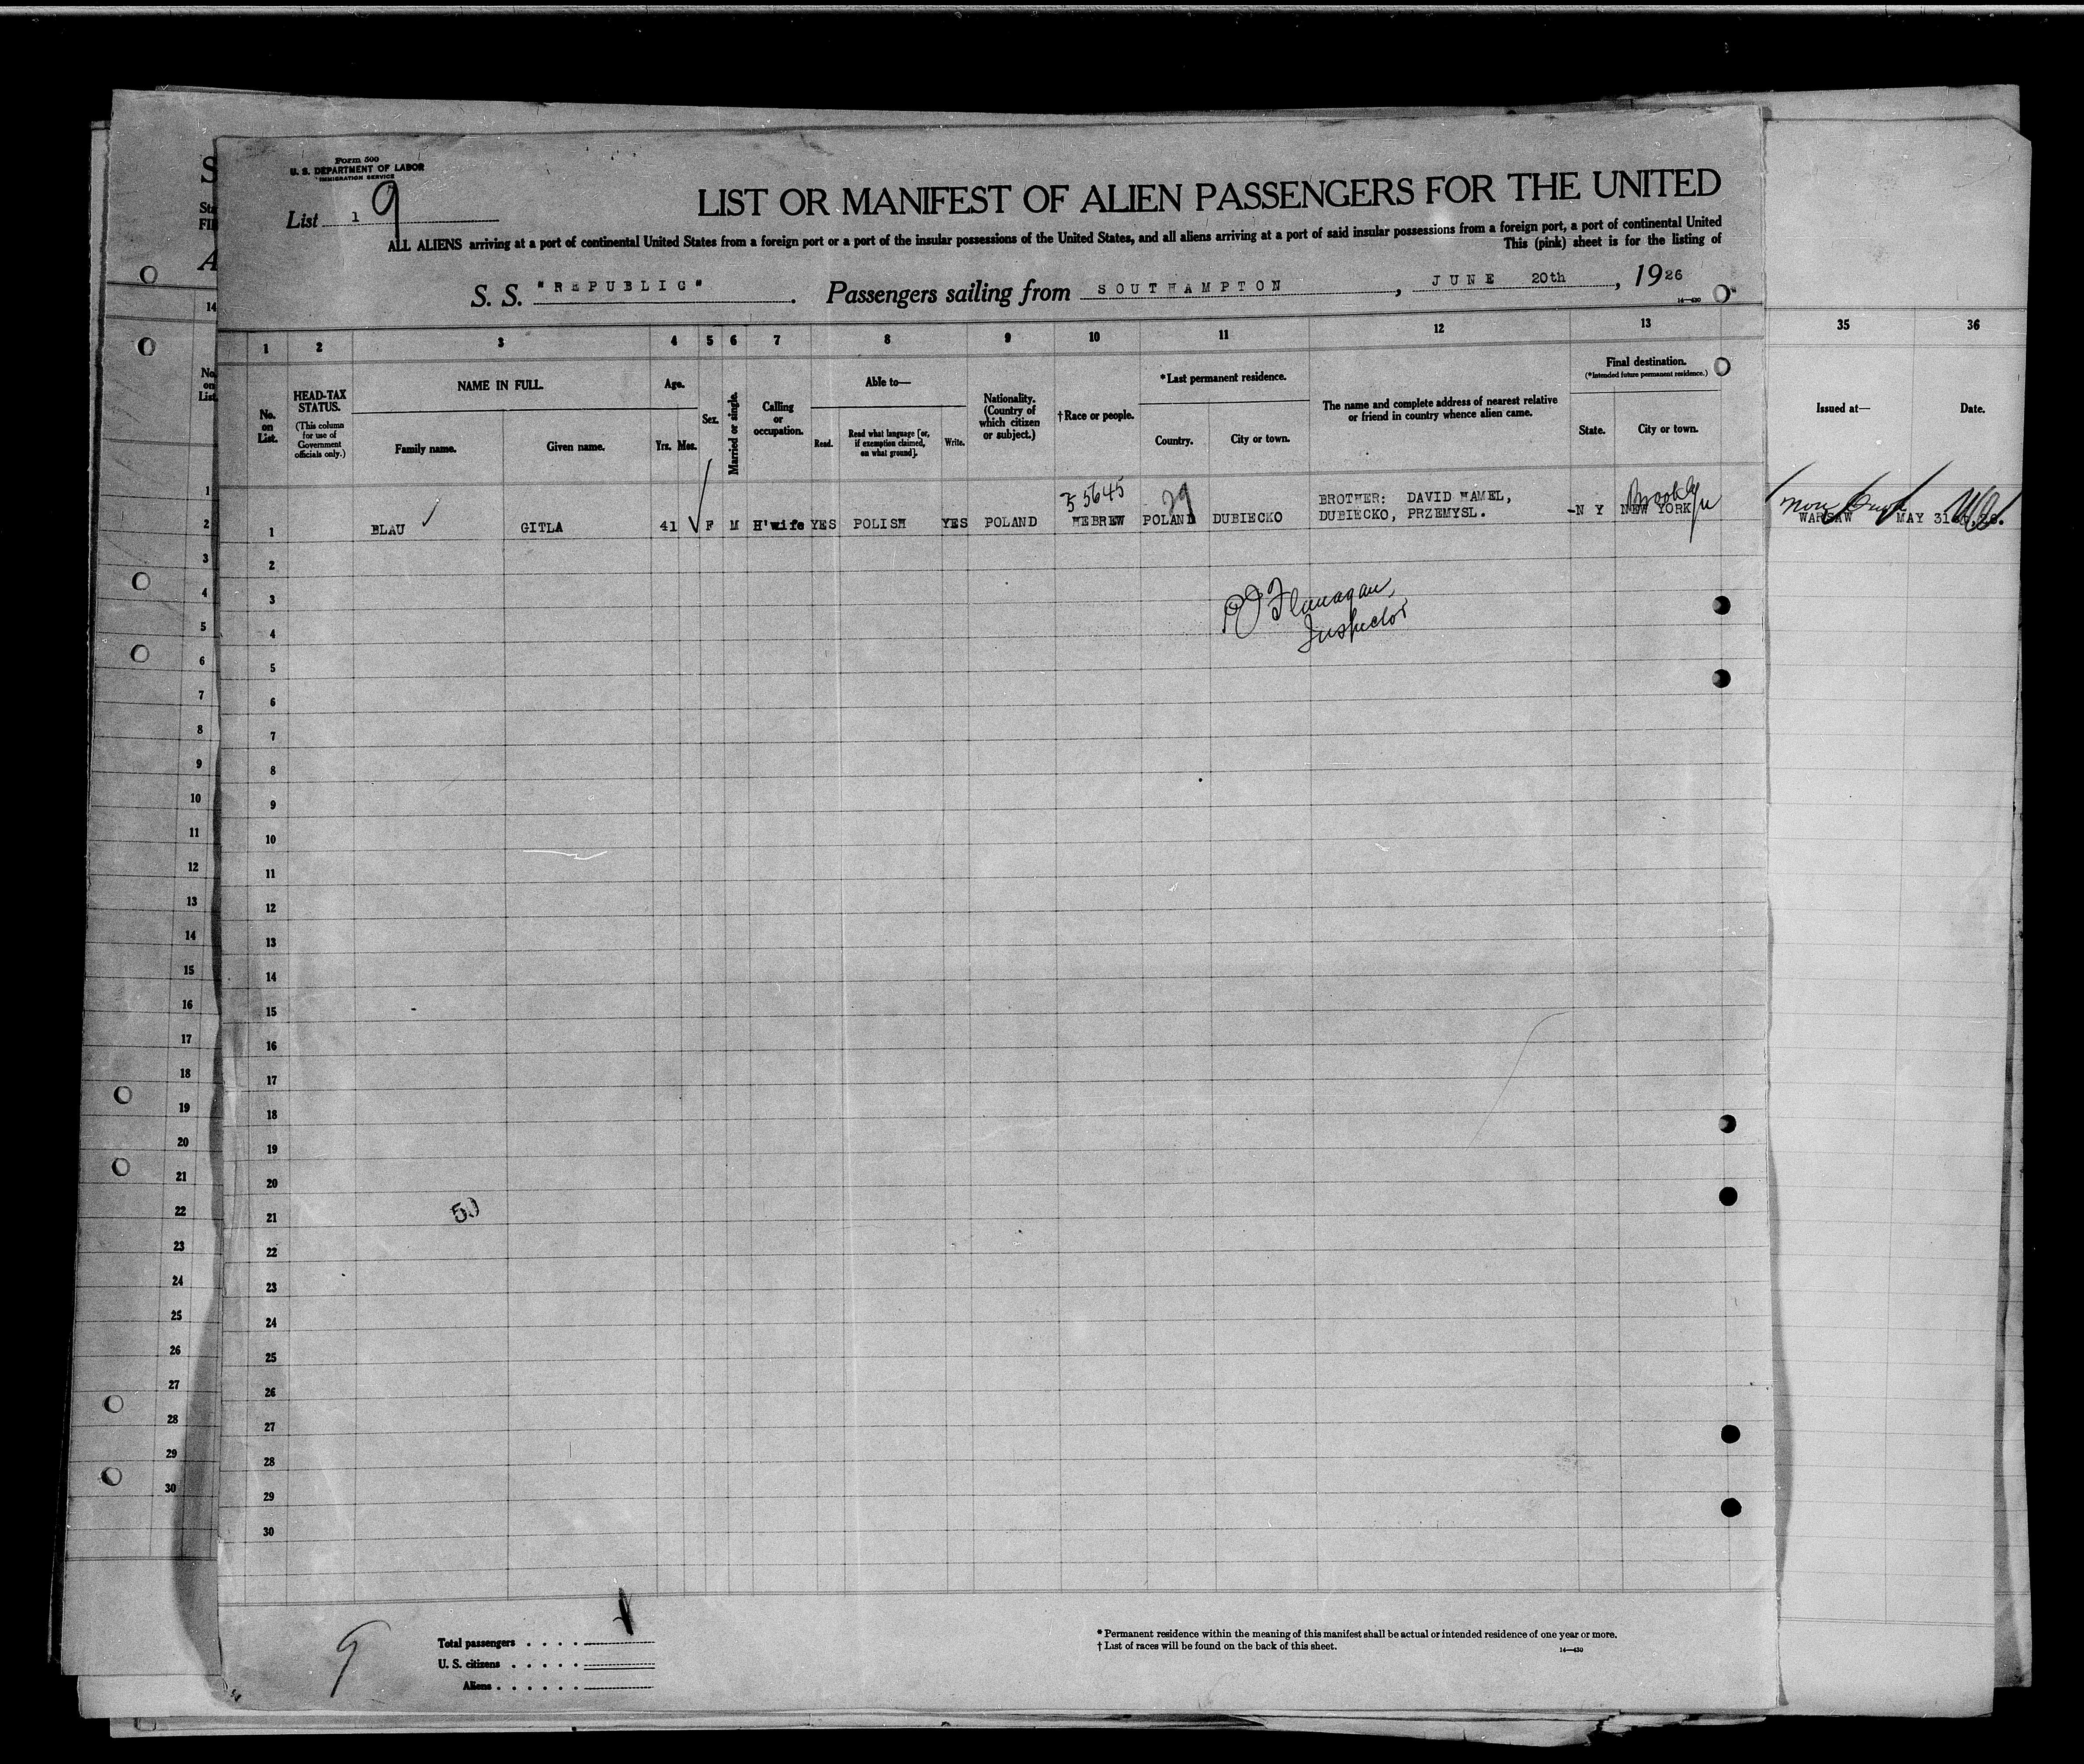 Form 500
U. S. DEPARTMENT OF LABOR
IMMIGRATION SERVICE
List 1 9
LIST OR MANIFEST OF ALIEN PASSENGERS FOR THE UNITED
ALL ALIENS arriving at a port of continental United States from a foreign port or a port of the insular possessions of the United States, and all aliens arriving at a port of said insular possessions from a foreign port, a port of continental United
This (pink) sheet is for the listing of
S. S. "REPUBLIC". Passengers sailing from SOUTHAMPTON, JUNE 20th, 1926
14—430
1 2 3 4 5 6 7 8 9 10 11 12 13 35 36
No. on List.
HEAD-TAX STATUS.
(This column for use of Government officials only.)
NAME IN FULL.
Family name. Given name.
Age.
Yrs. Mos.
Sex.
Married or single.
Calling or occupation.
Able to—
Read. Read what language [or, if exemption claimed, on what ground]. Write.
Nationality. (Country of which citizen or subject.)
†Race or people.
*Last permanent residence.
Country. City or town.
The name and complete address of nearest relative or friend in country whence alien came.
Final destination.
(*Intended future permanent residence.)
State. City or town.
Issued at— Date.
55645 29 BROTHER: DAVID HAMEL, Brooklyn
1 BLAU GITLA 41 F M H'wife YES POLISH YES POLAND HEBREW POLAND DUBIECKO DUBIECKO, PRZEMYSL. N Y NEW YORK WARSAW MAY 31
2
3
PJ Flanagan,
4
Inspector
5
6
7
8
9
10
11
12
13
14
15
16
17
18
19
20
21
50
22
23
24
25
26
27
28
29
30
9
Total passengers
U. S. citizens
Aliens
* Permanent residence within the meaning of this manifest shall be actual or intended residence of one year or more.
† List of races will be found on the back of this sheet.
14—430
S
A
14
No. on List.
1
2
3
4
5
6
7
8
9
10
11
12
13
14
15
16
17
18
19
20
21
22
23
24
25
26
27
28
29
30